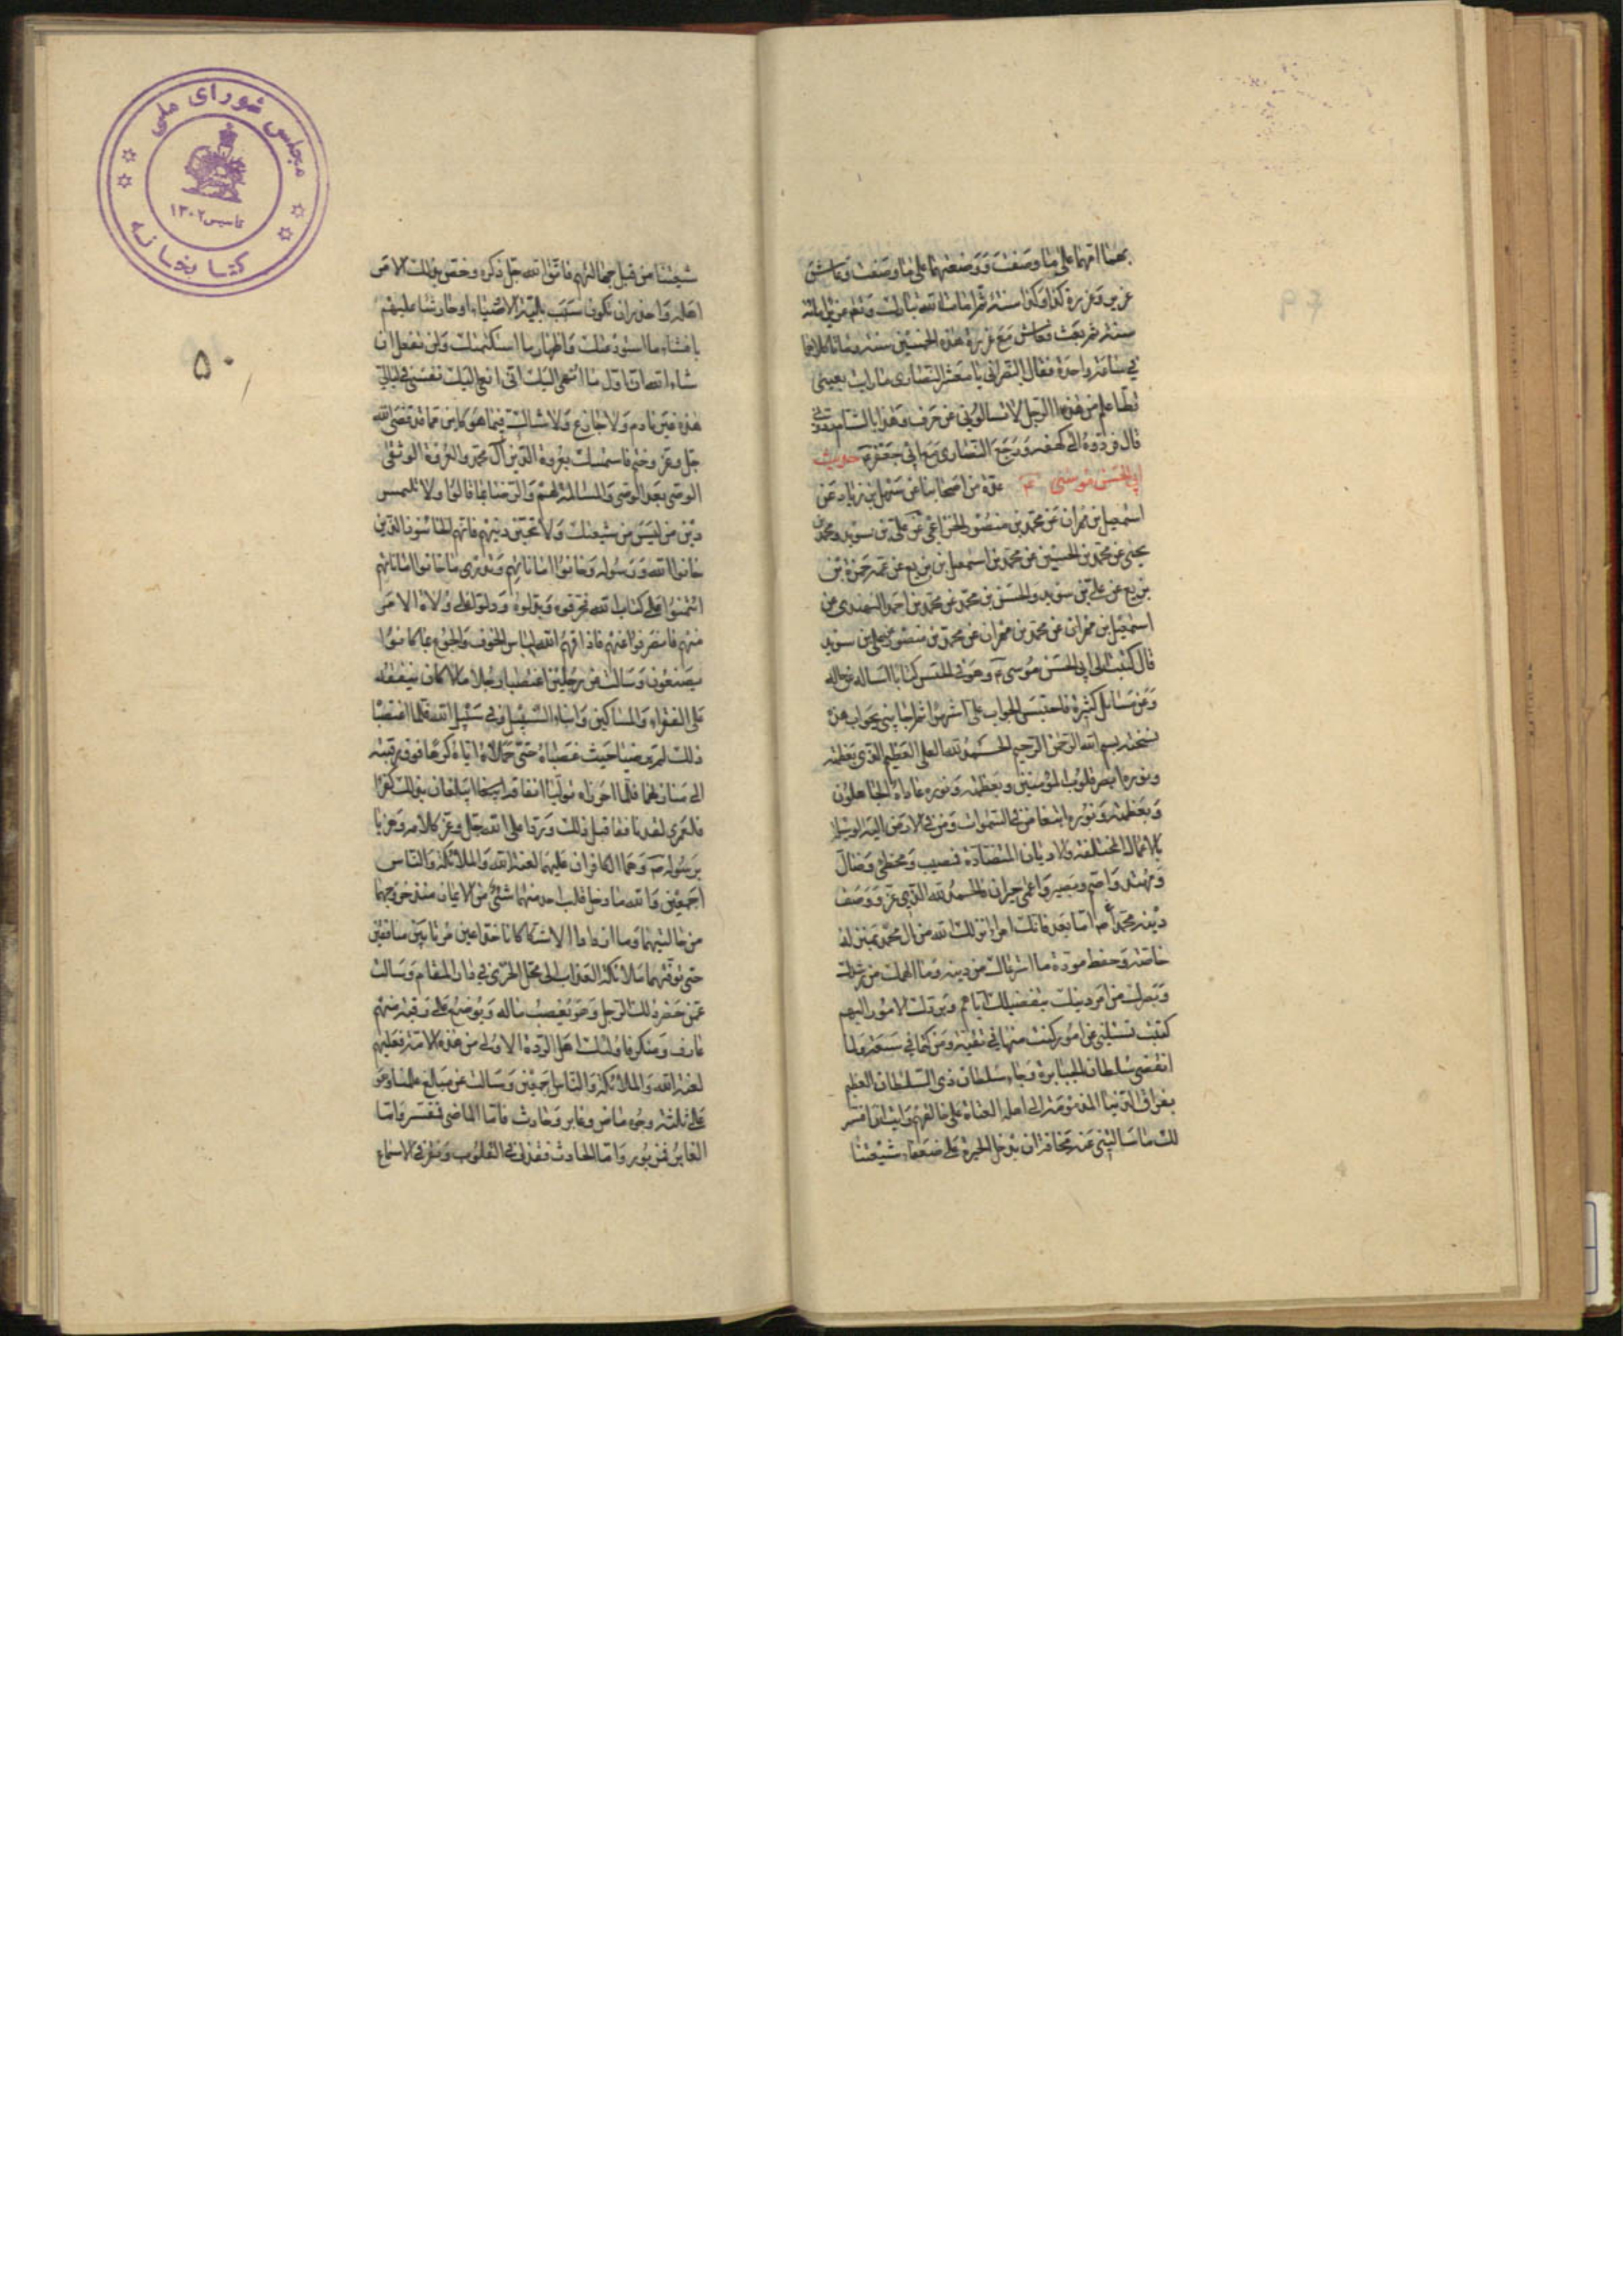 بهما امهما على ما وصفت و وضعتهما على ما وصفت و عاش
عزير و عزرة كذا و كذا سنة ثم امات الله تبارك و تعالى عزيرا مائة
سنة ثم بعث فعاش مع عزرة هذه الخمسين سنة و ماتا كلاهما
في ساعة واحدة فقال النصراني يا معشر النصارى ما رايت بعيني
قط اعلم من هذا الرجل لا تسالوني عن حرف و هذا بالشام ردوني
قال فردوه الى كهفه و رجع النصارى مع ابي جعفر ع حديث
ابي الحسن موسى ع عدة من اصحابنا عن سهل بن زياد عن
اسمعيل بن مهران عن محمد بن منصور الخزاعي عن علي بن سويد و محمد بن
يحيى عن محمد بن الحسين عن محمد بن اسمعيل بن بزيع عن عمه حمزة بن
بزيع عن علي بن سويد و الحسن بن محمد عن محمد بن احمد النهدي عن
اسمعيل بن مهران عن محمد بن منصور عن علي بن سويد
قال كتبت الى ابي الحسن موسى ع و هو في الحبس كتابا اساله عن حاله
و عن مسائل كثيرة فاحتبس الجواب على اشهر ثم اجابني بجواب هذه
نسخته بسم الله الرحمن الرحيم الحمد لله العلي العظيم الذي بعظمته
و نوره ابصر قلوب المؤمنين و بعظمته و نوره عاداه الجاهلون
و بعظمته و نوره ابتغا من في السموات و من في الارض اليه الوسيلة
بالاعمال المختلفة و الاديان المتضادة فمصيب و مخطئ و ضال
و مهتد و اصم و بصير و اعمى حيران فالحمد لله الذي عز و وصف
دينه محمد ص اما بعد فانك امرؤ انزلك الله من ال محمد بمنزلة
خاصة و حفظ مودة ما استرعاك من دينه و ما الهمك من رشدك
و بصرك من امر دينك بتفضيلك اياهم و بردك الامور اليهم
كتبت تسئلني عن امور كنت منها في تقية و من كتمانها في سعة فلما
انقضى سلطان الجبابرة و جاء سلطان ذي السلطان العظيم
بفراق الدنيا المذمومة الى اهلها العتاة على خالقهم رايت ان افسر
لك ما سالتني عنه مخافة ان يدخل الحيرة على ضعفاء شيعتنا
مجلس شورای ملی
تاسیس ۱۳۰۲
کتابخانه
۵۰
شيعتنا من قبل جهالتهم فاتق الله جل ذكره و خص بذلك الامر
اهله و احذر ان تكون سبب بلية الاوصياء او حارشا عليهم
بافشاء ما استودعتك و اظهار ما استكتمتك و لن تفعل ان
شاء الله ان اول ما انهي اليك اني انعي اليك نفسي في ليالي
هذه غير نادم و لا جازع و لا شاك فيما هو كائن مما قد قضى الله
جل و عز و حتم فاستمسك بعروة الدين آل محمد و العروة الوثقى
الوصي بعد الوصي و المسالمة لهم و الرضا بما قالوا و لا تلتمس
دين من ليس من شيعتك و لا تحبن دينهم فانهم الخائنون الذين
خانوا الله و رسوله و خانوا اماناتهم و تدري ما خانوا اماناتهم
ائتمنوا على كتاب الله فحرفوه و بدلوه و دلوا على ولاة الامر
منهم فانصرفوا عنهم فاذاقهم الله لباس الخوف و الجوع بما كانوا
يصنعون و سالت عن رجلين اغتصبا رجلا مالا كان ينفقه
على الفقراء و المساكين و ابناء السبيل و في سبيل الله فلما اغتصبا
ذلك لم يرضيا حيث غصباه حتى حملاه اياه كرها فوق رقبته
الى منازلهما فلما احرزاه توليا انفاقه ايبلغان بذلك كفرا
فلعمري لقد نافقا قبل ذلك و ردا على الله جل و عز كلامه و هزءا
برسوله ص و هما الكافران عليهما لعنة الله و الملائكة و الناس
اجمعين و الله ما دخل قلب احد منهما شئ من الايمان منذ خروجهما
من حالتيهما و ما ازدادا الا شكا كانا خداعين مرتابين منافقين
حتى توفتهما ملائكة العذاب الى محل الخزي في دار المقام و سالت
عمن حضر ذلك الرجل و هو يغصب ماله و يوضع على رقبته منهم
عارف و منكر فاولئك اهل الردة الاولى من هذه الامة فعليهم
لعنة الله و الملائكة و الناس اجمعين و سالت عن مبالغ علمنا و هو
على ثلثة وجوه ماض و غابر و حادث فاما الماضي فمفسر و اما
الغابر فمزبور و اما الحادث فقذف في القلوب و نقر في الاسماع